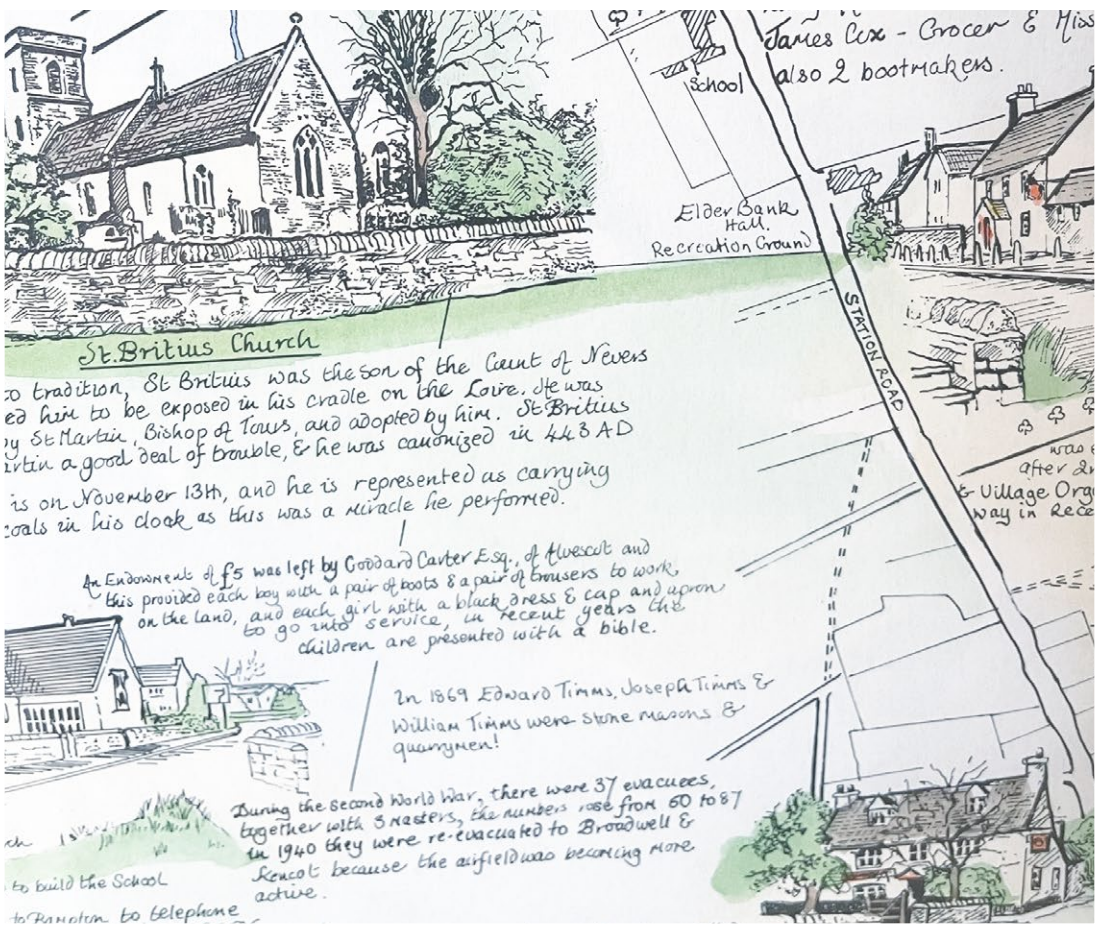 James Cox - Grocer & Miss
also 2 bootmakers.
School
Elder Bank
Hall.
Recreation Ground
STATION ROAD
St. Britius Church
to tradition, St Britius was the son of the Count of Nevers
ed him to be exposed in his cradle on the Loire. He was
by St Martin, Bishop of Tours, and adopted by him. St Britius
artin a good deal of trouble, & he was canonized in 443 AD
is on November 13th, and he is represented as carrying
coals in his cloak as this was a miracle he performed.
was
after 2n
& Village Orga
way in Rece
An Endowment of £5 was left by Goddard Carter Esq., of Alvescot and
this provided each boy with a pair of boots & a pair of trousers to work
on the land, and each girl with a black dress & cap and apron
to go into service, in recent years the
children are presented with a bible.
In 1869 Edward Timms, Joseph Timms &
William Timms were stone masons &
quarrymen!
During the Second World War, there were 37 evacuees,
together with 3 Masters, the numbers rose from 60 to 87
in 1940 they were re-evacuated to Broadwell &
Kencot because the airfield was becoming more
active.
ch
to build the School
to Bampton to telephone